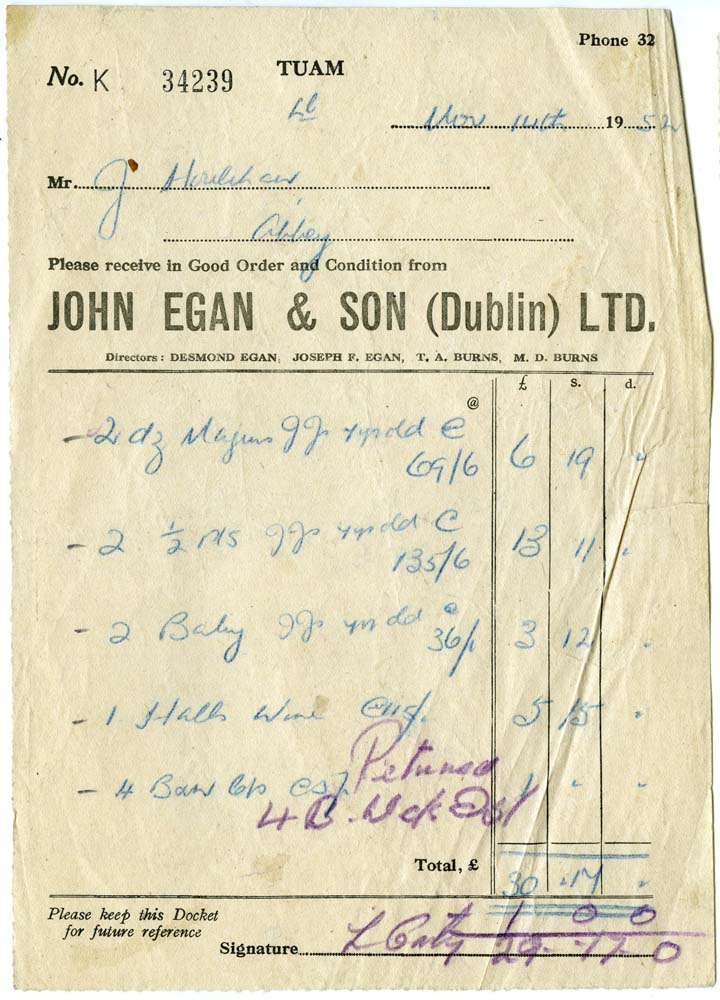 Phone 32
No. K 34239 TUAM
Nov 14th 1952
Mr. J
Abbey
Please receive in Good Order and Condition from
JOHN EGAN & SON (Dublin) LTD.
Directors: DESMOND EGAN, JOSEPH F. EGAN, T. A. BURNS, M. D. BURNS
£ s. d.
@
- 2 dz JJs @
69/6 6 19 "
- 2 ½ JJs @
135/6 13 11 "
- 2 Baby JJs @
36/ 3 12 "
- 1 Halls Wine @ 115/ 5 15 "
Returned
- 4 @ 5/ 1 " "
4
Total, £ 30 17 "
Please keep this Docket
for future reference
1 0 0
Signature 29 17 0